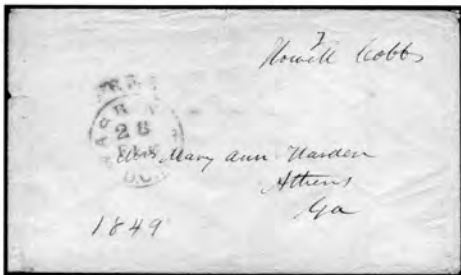 Howell Cobb
FREE
28
D.C.
Mrs Mary Ann Harden
Athens
Ga
1849